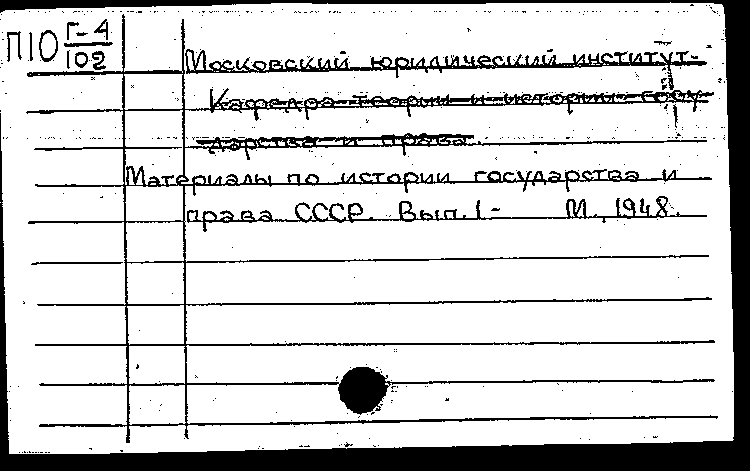 П10 Г-4/102
Московский юридический институт-
Кафедра теории и истории госу
дарства и права.
Материалы по истории государства и
права СССР. Вып. 1- М., 1948.